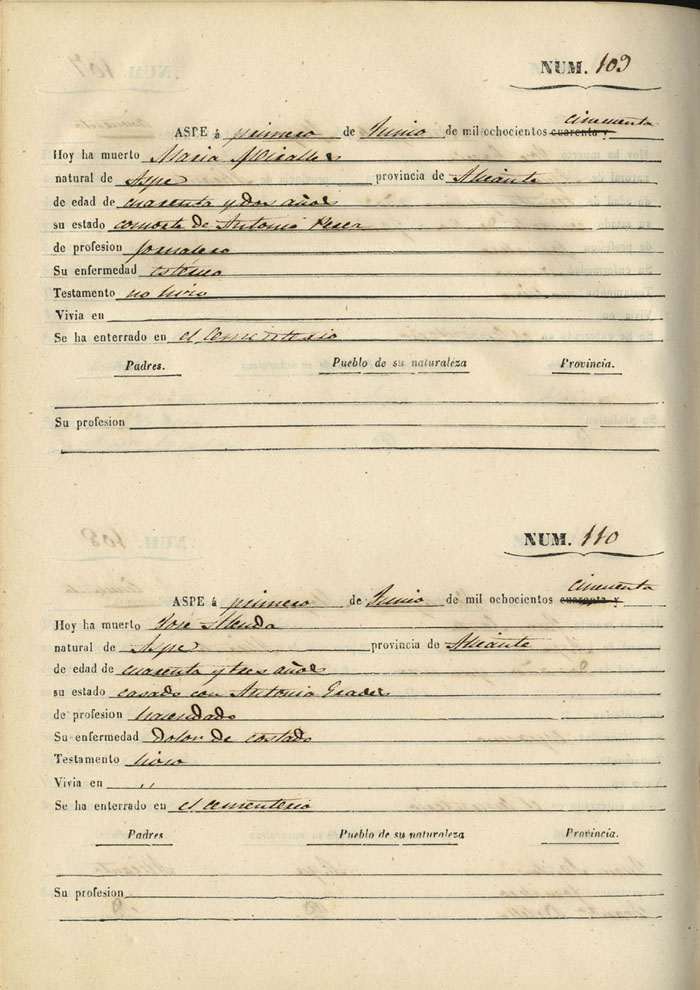 NUM. 109
cincuenta
ASPE á primero de Junio de mil ochocientos cuarenta y
Hoy ha muerto Maria Miralles
natural de Aspe provincia de Alicante
de edad de cuarenta y dos años
su estado consorte de Antonio
de profesion jornalero
Su enfermedad
Testamento no hizo
Vivia en
Se ha enterrado en el cementerio
Padres. Pueblo de su naturaleza Provincia.
Su profesion
NUM. 110
cincuenta
ASPE á primero de Junio de mil ochocientos cuarenta y
Hoy ha muerto José
natural de Aspe provincia de Alicante
de edad de cuarenta y tres años
su estado casado con Antonia
de profesion hacendado
Su enfermedad dolor de costado
Testamento hizo
Vivia en "
Se ha enterrado en el cementerio
Padres. Pueblo de su naturaleza Provincia.
Su profesion